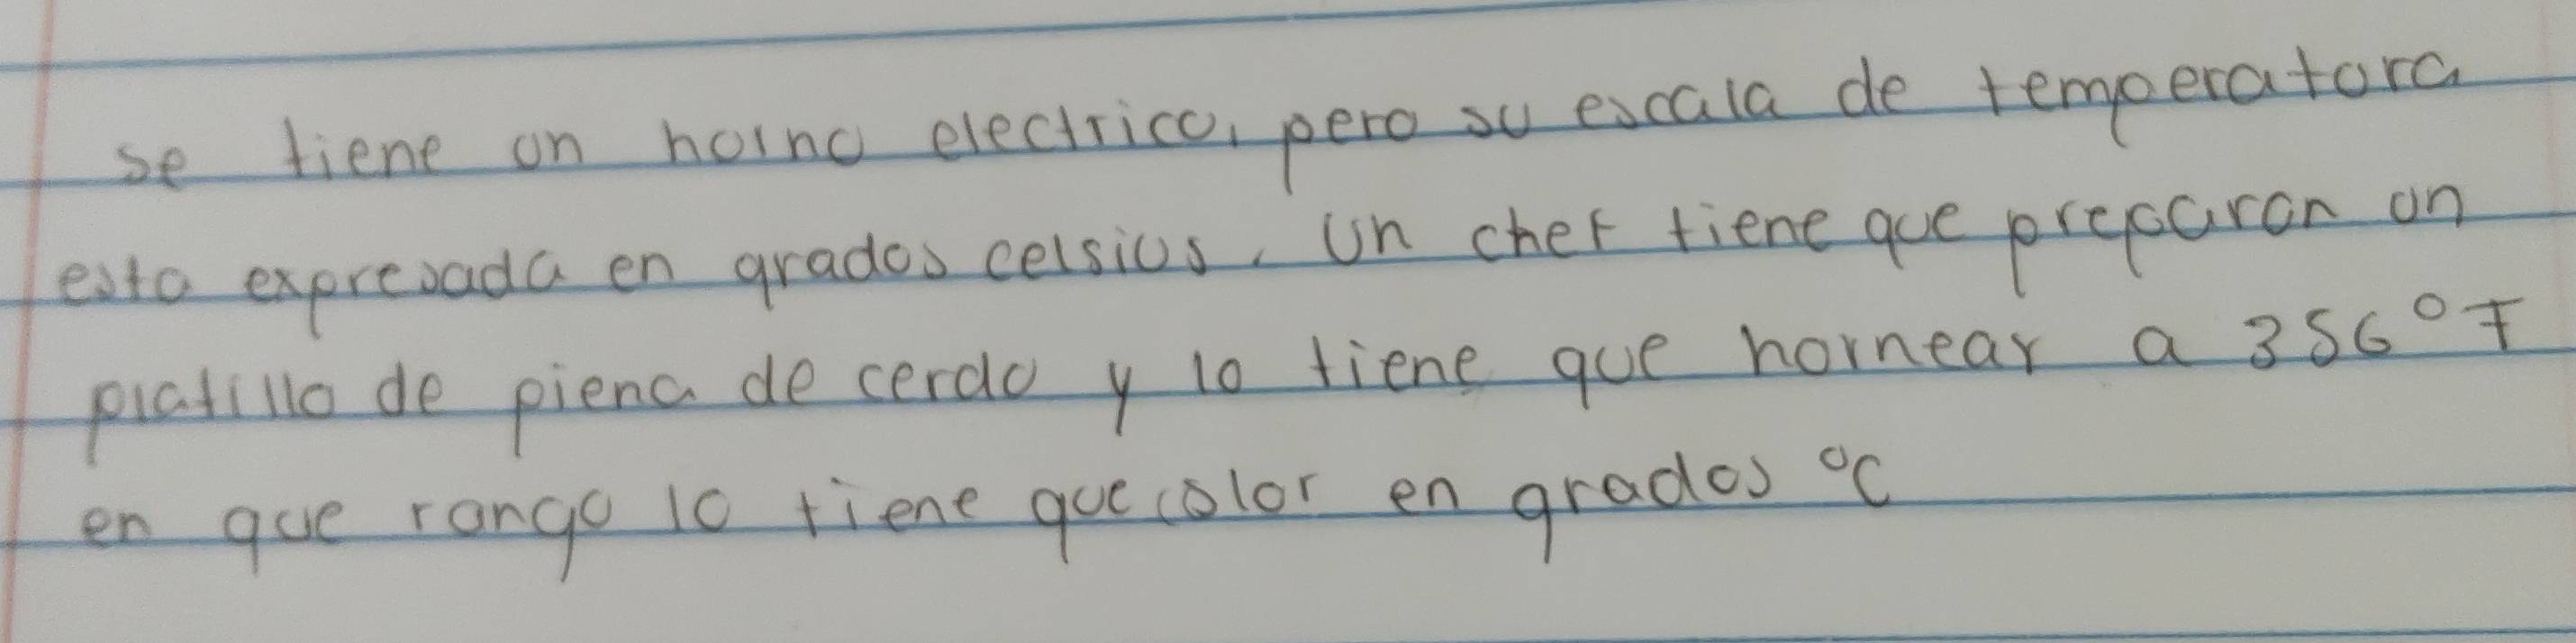 se tiene un horno electrico, pero su escala de temperatura
esta expresada en grados celsius. Un chef tiene que preparar un
platillo de piena de cerdo y lo tiene que hornear a 356°F
en que rango lo tiene que color en grados °C